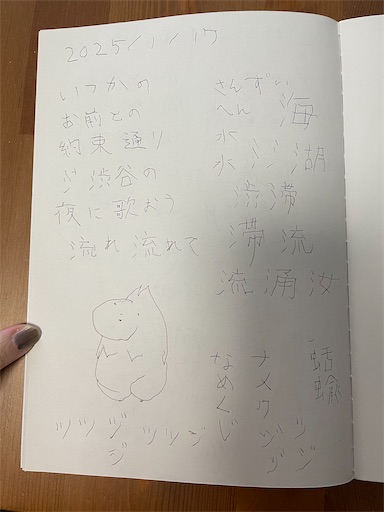 2025/1/17
いつかの
お前との
約束通り
シ 渋谷の
夜に歌おう
流れ 流れて
さんずい
へん 海
水
氺 シシ 湖
渋滞
滞 流
流 涌 汝
なめくじ
ナメク
ジジ
ツ
ジ
蛞
蝓
ツツ ジ ツツジ
ジ